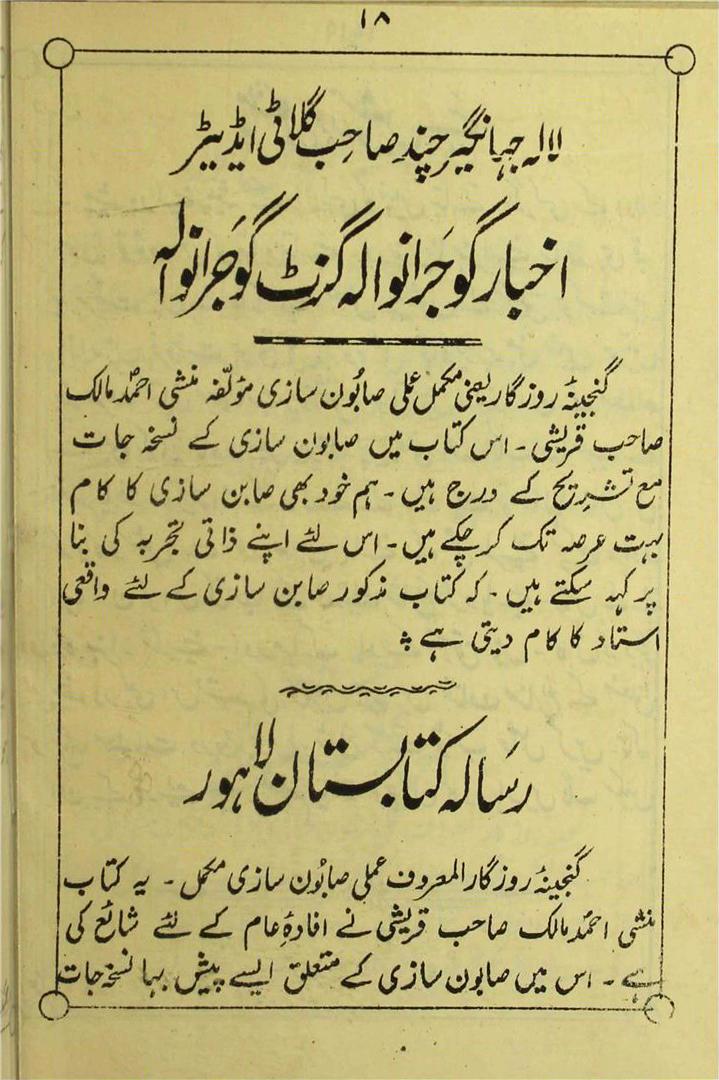 ۱۸
لالہ جہانگیر چند صاحب گلاٹی ایڈیٹر
اخبار گوجرانوالہ گزٹ گوجرانوالہ
گنجینۂ روزگار یعنی مکمل عملی صابُون سازی مؤلّفہ منشی احمدؐ مالک
صاحب قریشی ۔ اس کتاب میں صابون سازی کے نسخہ جات
مع تشریح کے درج ہیں ۔ ہم خود بھی صابن سازی کا کام
بہت عرصہ تک کر چکے ہیں ۔ اس لئے اپنے ذاتی تجربہ کی بنا
پر کہہ سکتے ہیں ۔ کہ کتاب مذکور صابن سازی کے لئے واقعی
استاد کا کام دیتی ہے ؞
رسالہ کتابستان لاہور
گنجینۂ روزگار المعروف عملی صابُون سازی مکمل ۔ یہ کتاب
منشی احمدؐ مالک صاحب قریشی نے افادۂِ عام کے لئے شائع کی
ہے ۔ اس میں صابون سازی کے متعلق ایسے پیش بہا نسخہ جات